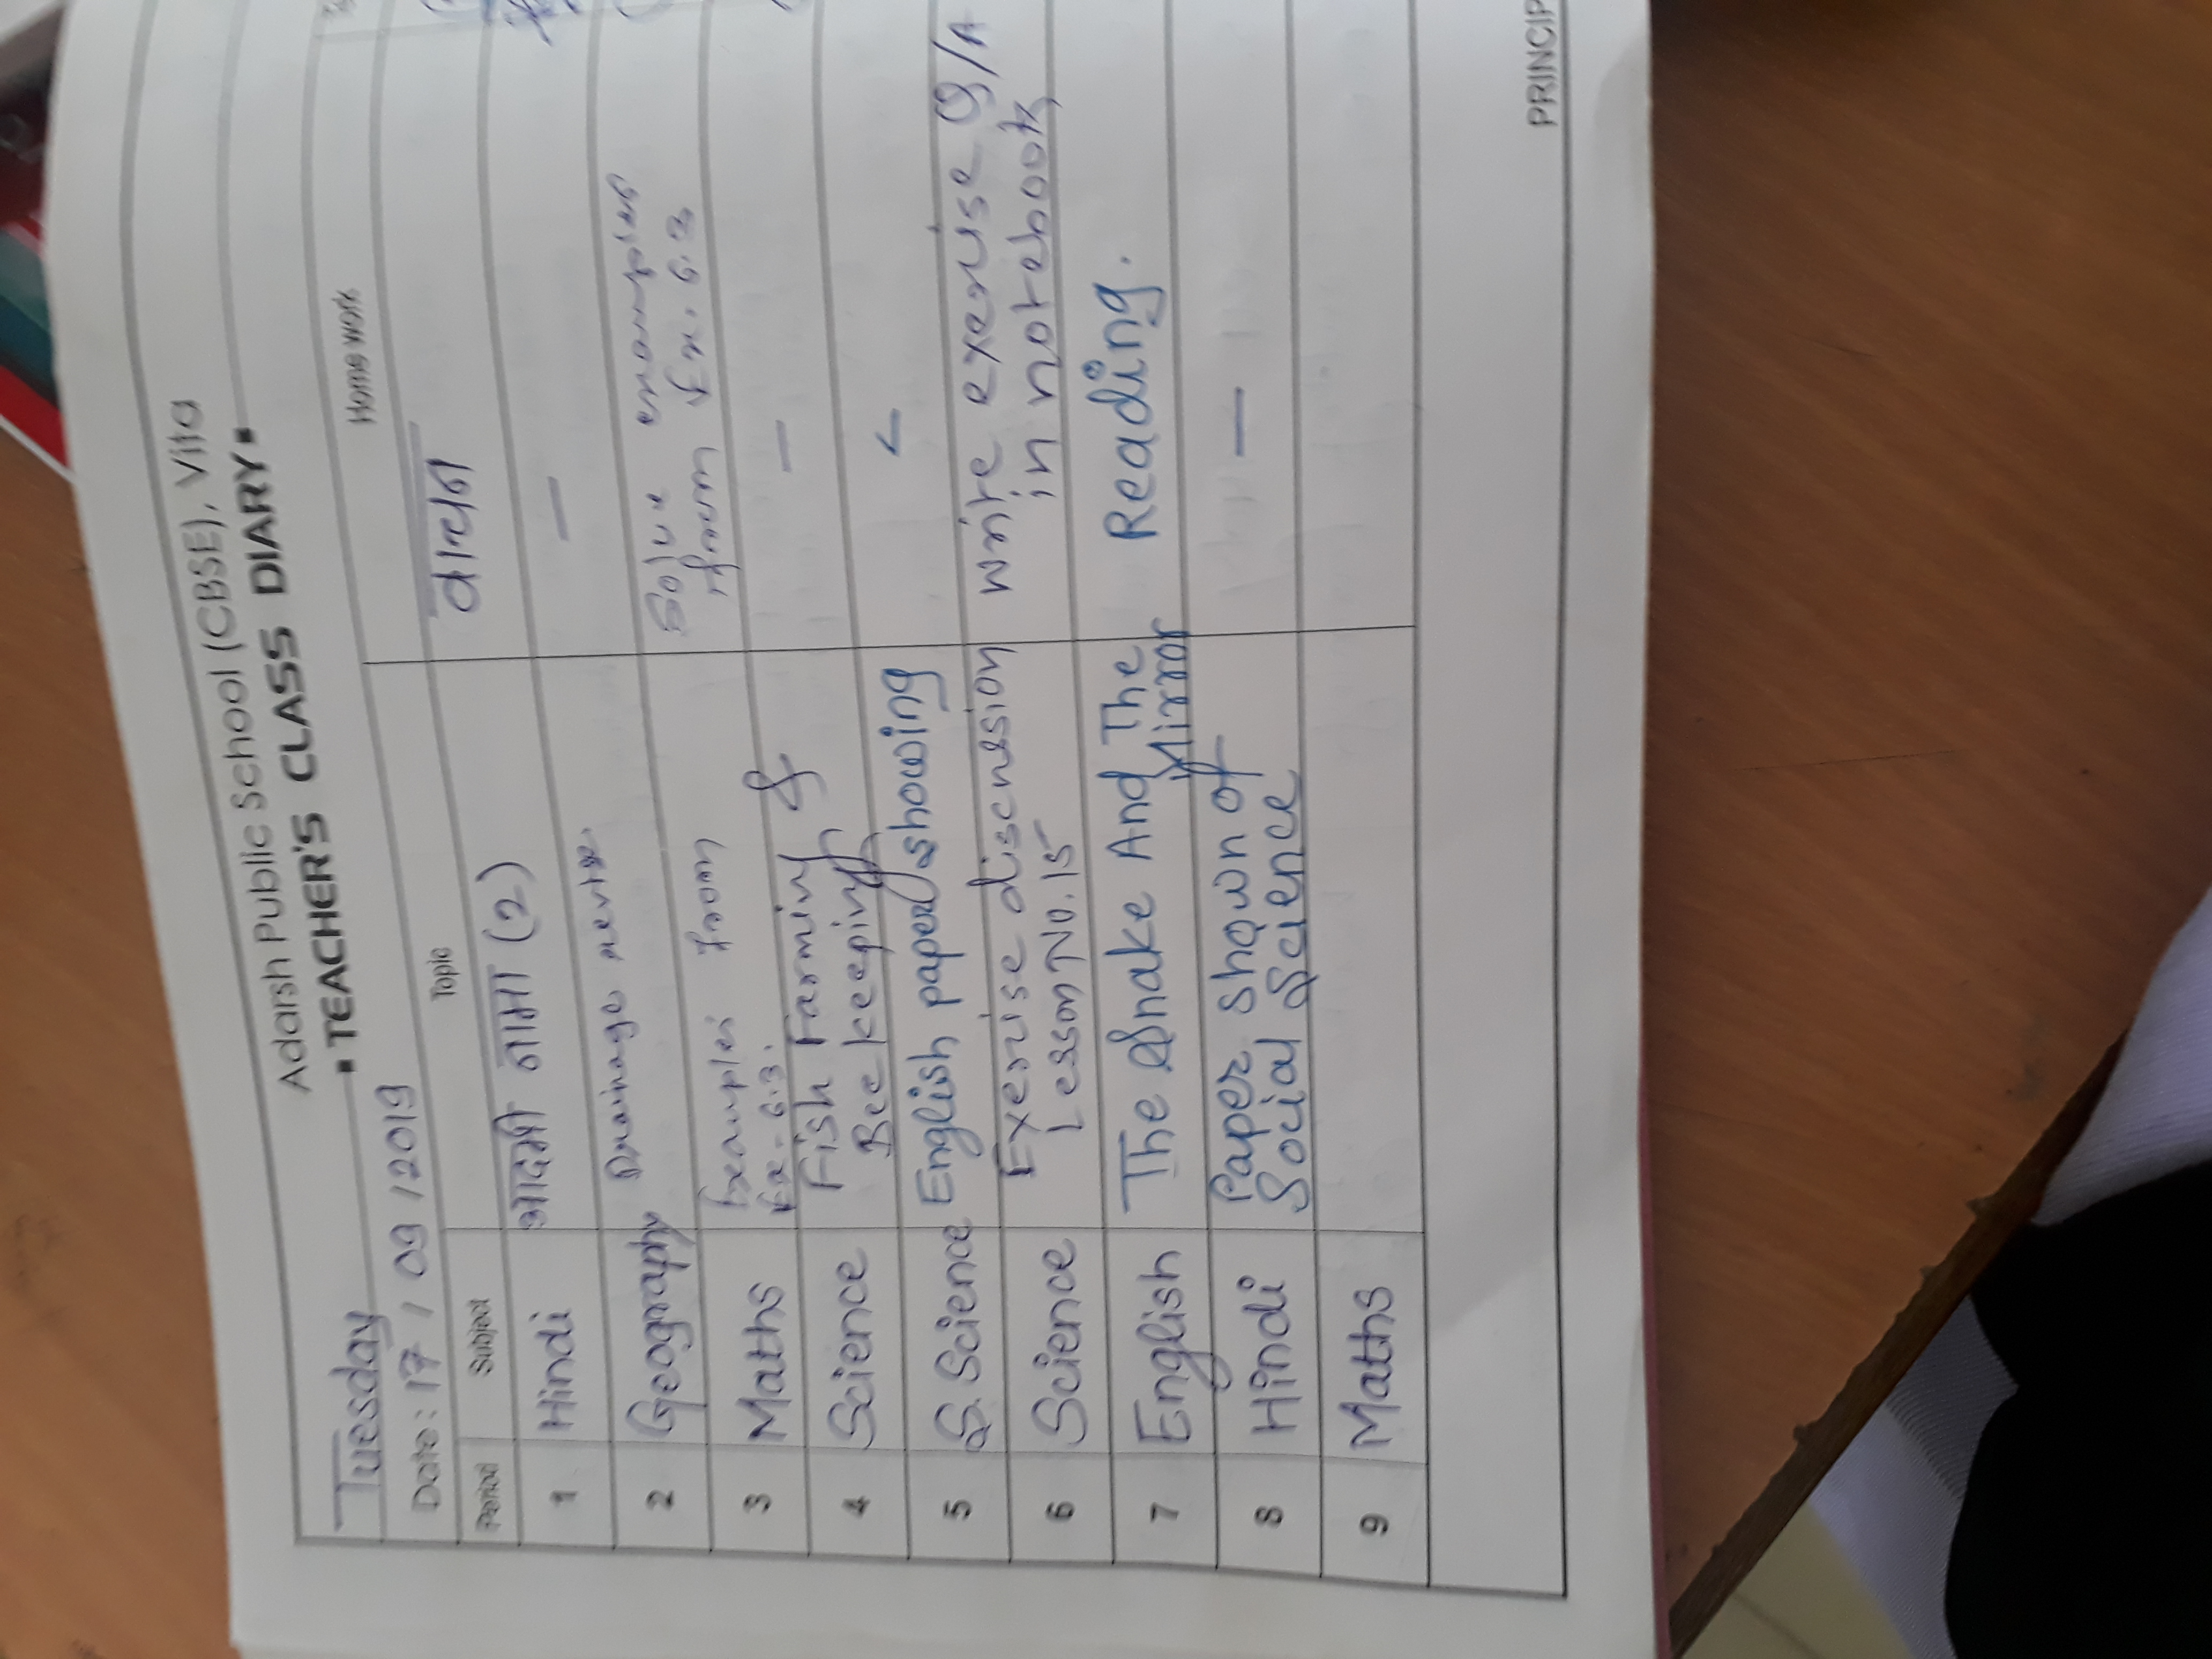 Adarsh Public School (CBSE), Vita
• TEACHER'S CLASS DIARY •
Tuesday
Date: 17 / 09 / 2019
Period Subject Topic Home work
1 Hindi आदमी नामा (2) वाचन
2 Geography Drainage —
3 Maths Examples from Solve examples
Ex. 6.3. from Ex. 6.3
4 Science Fish Farming & —
Bee keeping
5 S. Science English paper showing -
6 Science Exerise discussion write exerise Q/A
Lesson No. 15 in notebook
7 English The Snake And The Reading.
Mirror
8 Hindi Paper shown of —
Social Science
9 Maths
PRINCIP